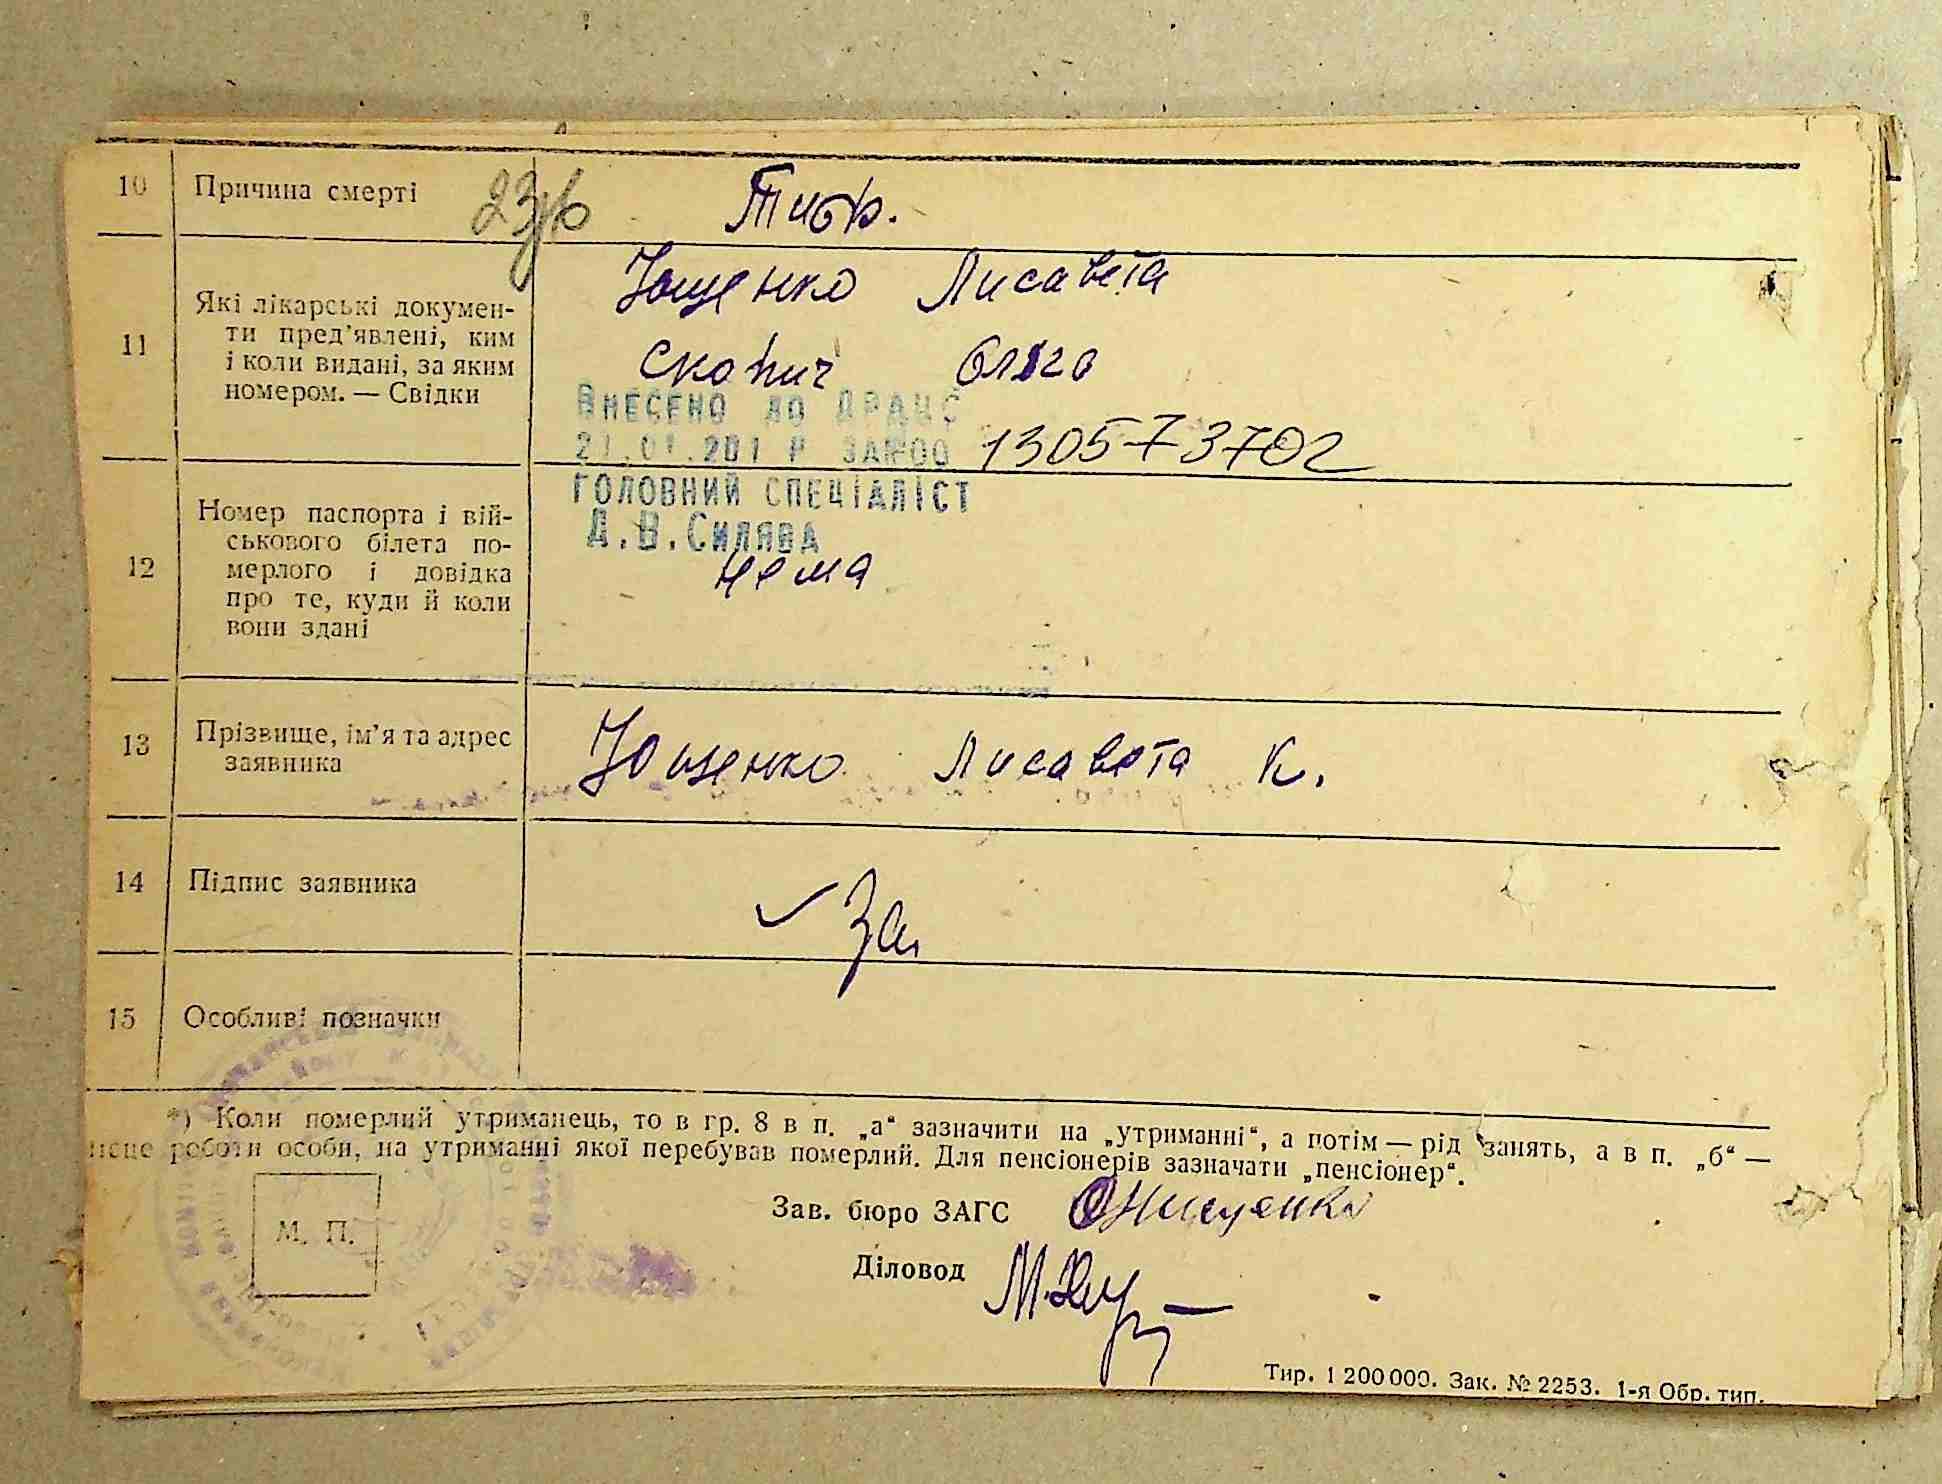 10 Причина смерті Тиф.
11 Які лікарські докумен-
ти пред’явлені, ким
і коли видані, за яким
номером. — Свідки
Ющенко Лисавета
Скопич Ольга
ВНЕСЕНО ДО ДРАЦС
21.01.201 Р ЗА №00 130573702
ГОЛОВНИЙ СПЕЦІАЛІСТ
Д.В.СИЛЯВА
12 Номер паспорта і вій-
ськового білета по-
мерлого і довідка
про те, куди й коли
вони здані
нема
13 Прізвище, ім’я та адрес
заявника
Ющенко Лисавета К.
14 Підпис заявника
15 Особливі позначки
*) Коли померлий утриманець, то в гр. 8 в п. „а“ зазначити на „утриманні“, а потім — рід занять, а в п. „б“ —
місце роботи особи, на утриманні якої перебував померлий. Для пенсіонерів зазначати „пенсіонер“.
М. П.
Зав. бюро ЗАГС
Діловод
Тир. 1 200 000. Зак. № 2253. 1-я Обр. тип.